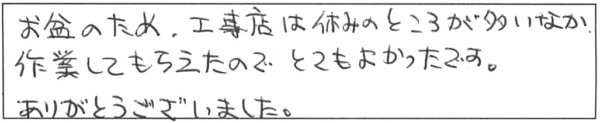 お盆のため、工専店は休みのところが多いなか、
作業してもらえたので とてもよかったです。
ありがとうございました。